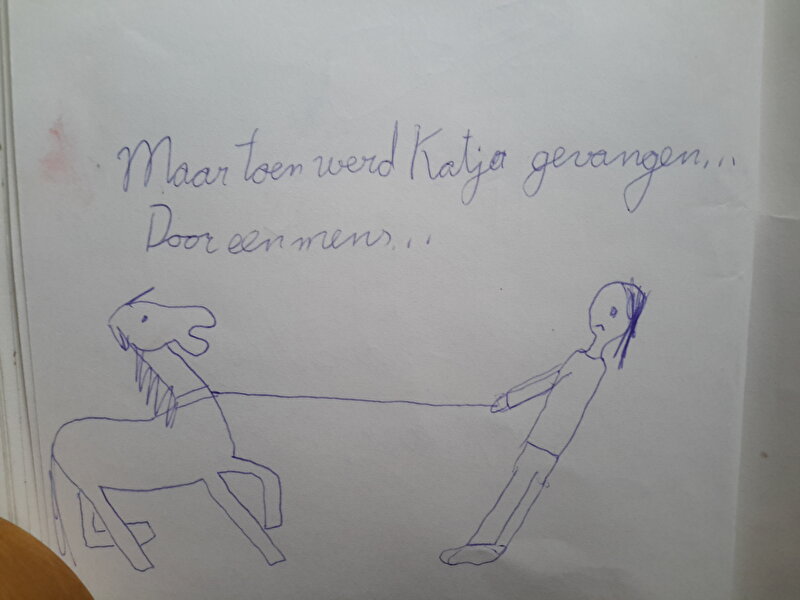 Maar toen werd Katja gevangen...
Door een mens...